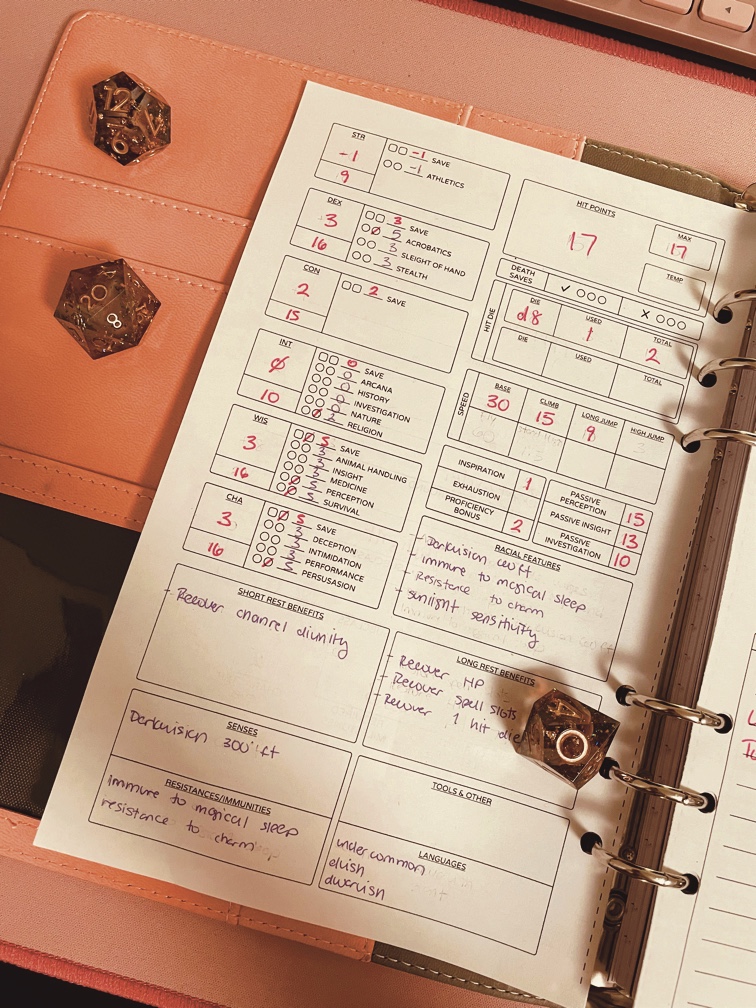 STR
-1
9
-1 SAVE
-1 ATHLETICS
DEX
3
16
3 SAVE
5 ACROBATICS
3 SLEIGHT OF HAND
3 STEALTH
CON
2
15
2 SAVE
INT
0
10
0 SAVE
0 ARCANA
0 HISTORY
0 INVESTIGATION
0 NATURE
2 RELIGION
WIS
3
16
5 SAVE
ANIMAL HANDLING
INSIGHT
MEDICINE
PERCEPTION
SURVIVAL
CHA
3
16
5 SAVE
DECEPTION
INTIMIDATION
PERFORMANCE
PERSUASION
HIT POINTS
17
MAX
17
TEMP
DEATH SAVES
HIT DIE
DIE
d8
USED
1
TOTAL
2
DIE
USED
TOTAL
SPEED
BASE
30
CLIMB
15
LONG JUMP
9
HIGH JUMP
3
INSPIRATION 1
EXHAUSTION
PROFICIENCY BONUS 2
PASSIVE PERCEPTION 15
PASSIVE INSIGHT 13
PASSIVE INVESTIGATION 10
RACIAL FEATURES
- Darkvision
- immune to magical sleep
- Resistance to charm
- sunlight sensitivity
SHORT REST BENEFITS
- Recover channel divinity
LONG REST BENEFITS
- Recover HP
- Recover spell slots
- Recover 1 hit die
SENSES
Darkvision 300 ft
RESISTANCES/IMMUNITIES
immune to magical sleep
resistance to charm
TOOLS & OTHER
LANGUAGES
undercommon
elvish
dwarvish
12
20
8
0